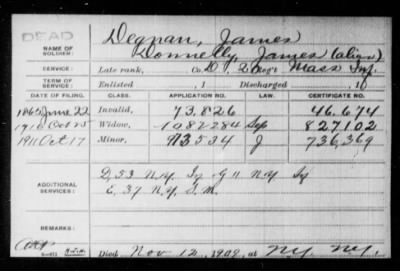 DEAD
NAME OF SOLDIER:
Degnan, James
Donnelly, James (alias)
SERVICE:
Late rank, Co. D, 28 Reg't Mass Inf.
TERM OF SERVICE:
Enlisted , 1 Discharged , 1
DATE OF FILING. CLASS. APPLICATION NO. LAW. CERTIFICATE NO.
1865 June 22 Invalid, 73.826 46.674
Oct 25 Widow, 1082284 827102
1911 Oct 17 Minor, 913534 J 736,369
ADDITIONAL SERVICES:
D, 53 N.Y. Inf G 11 N.Y. Inf
E, 37 N.Y. S.M.
REMARKS:
Died Nov. 12, 1909, at N.Y. N.Y.